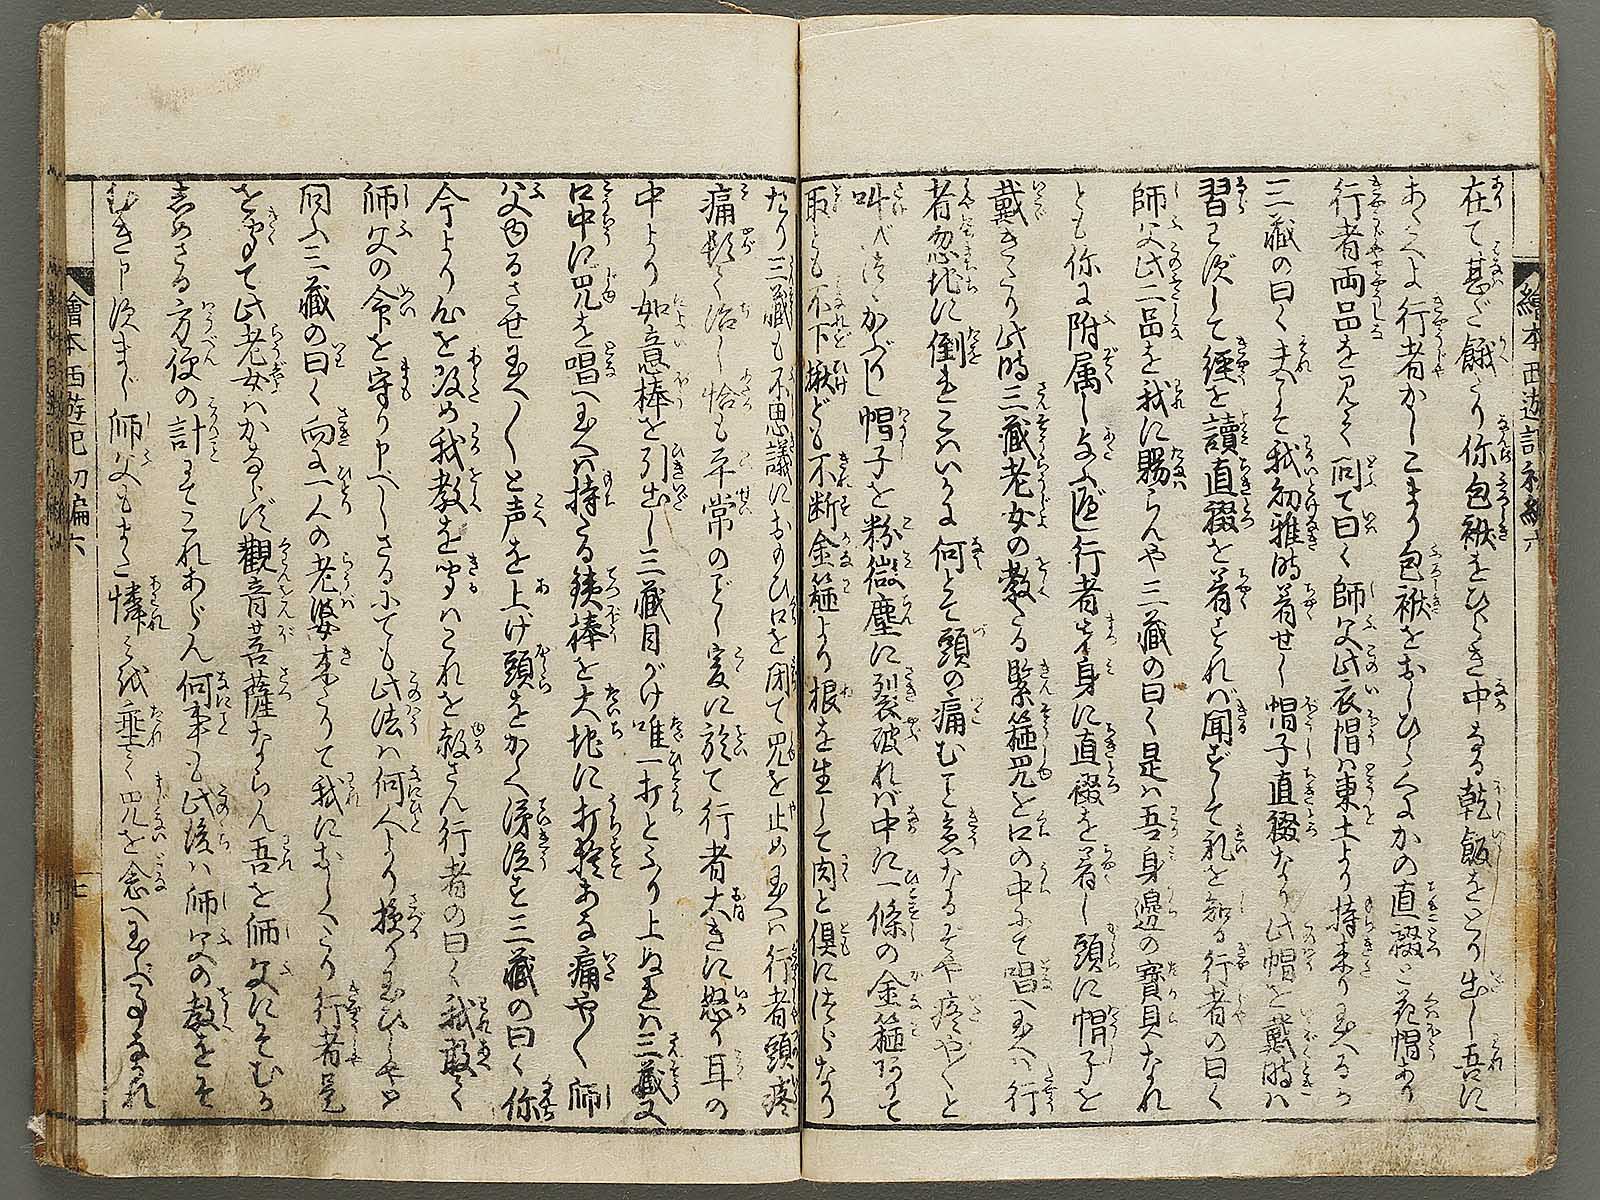 繪本西遊記初編六
在て甚だ餓たり你包袱をひらき中なる乾飯をとり出し吾に
あたへよ行者かしこまり包袱をおしひらくになかの直裰と花帽あり
行者両品を見て問て曰く師父此衣帽は東土より持来り玉へるか
三藏の曰くまへそ我幼雅時着せし帽子直裰なり此帽を戴時は
習はずして經を讀直裰を着すれば聞ずして礼を知る行者の曰く
師父此二品を我に賜らんや三藏の曰く是は吾身邊の寳貝なれ
とも你に附属し与ふ可し行者身に直裰を着し頭に帽子を
戴きたり此時三藏老女の教たる緊箍咒を口の中にて唱へ玉へは行
者忽地に倒れこはいかに何とて頭の痛むこと急なるぞや疼や〱と
叫びけるがかぶりし帽子を粉微塵に裂破れば中に一條の金箍ありて
取とも不下揪ども不断金箍より根を生して肉と倶になりけり
たり三藏も不思議におもひ口を閉て咒を止め玉へは行者頭疼
痛軽く治し恰も平常のごとし爰に於て行者大きに怒り耳の
中より如意棒を引出し三藏目がけ唯一打とふり上ぬれは三藏又
口中に咒を唱へ玉へは持たる鉄棒を大地に打捨あな痛や〱師
父ゆるさせ玉へ〱と声を上け頭をかゝへ涕泣す三藏の曰く你
今より心を改め我教を守らはこれを赦さん行者の曰く我敢て
師父の命を守り申べしさるにても此法は何人より授り玉ひしや
問ふ三藏の曰く向に一人の老婆来りて我におしへたり行者是
を聞て此老女はかならず觀音菩薩ならん吾を師父にそむか
しめさる方便の計にてこれあらん何事も此後は師父の教をそ
むき申須まじ師父もまた憐みを垂て咒を念へ玉ふ事なかれ
繪本西遊記初編六
七